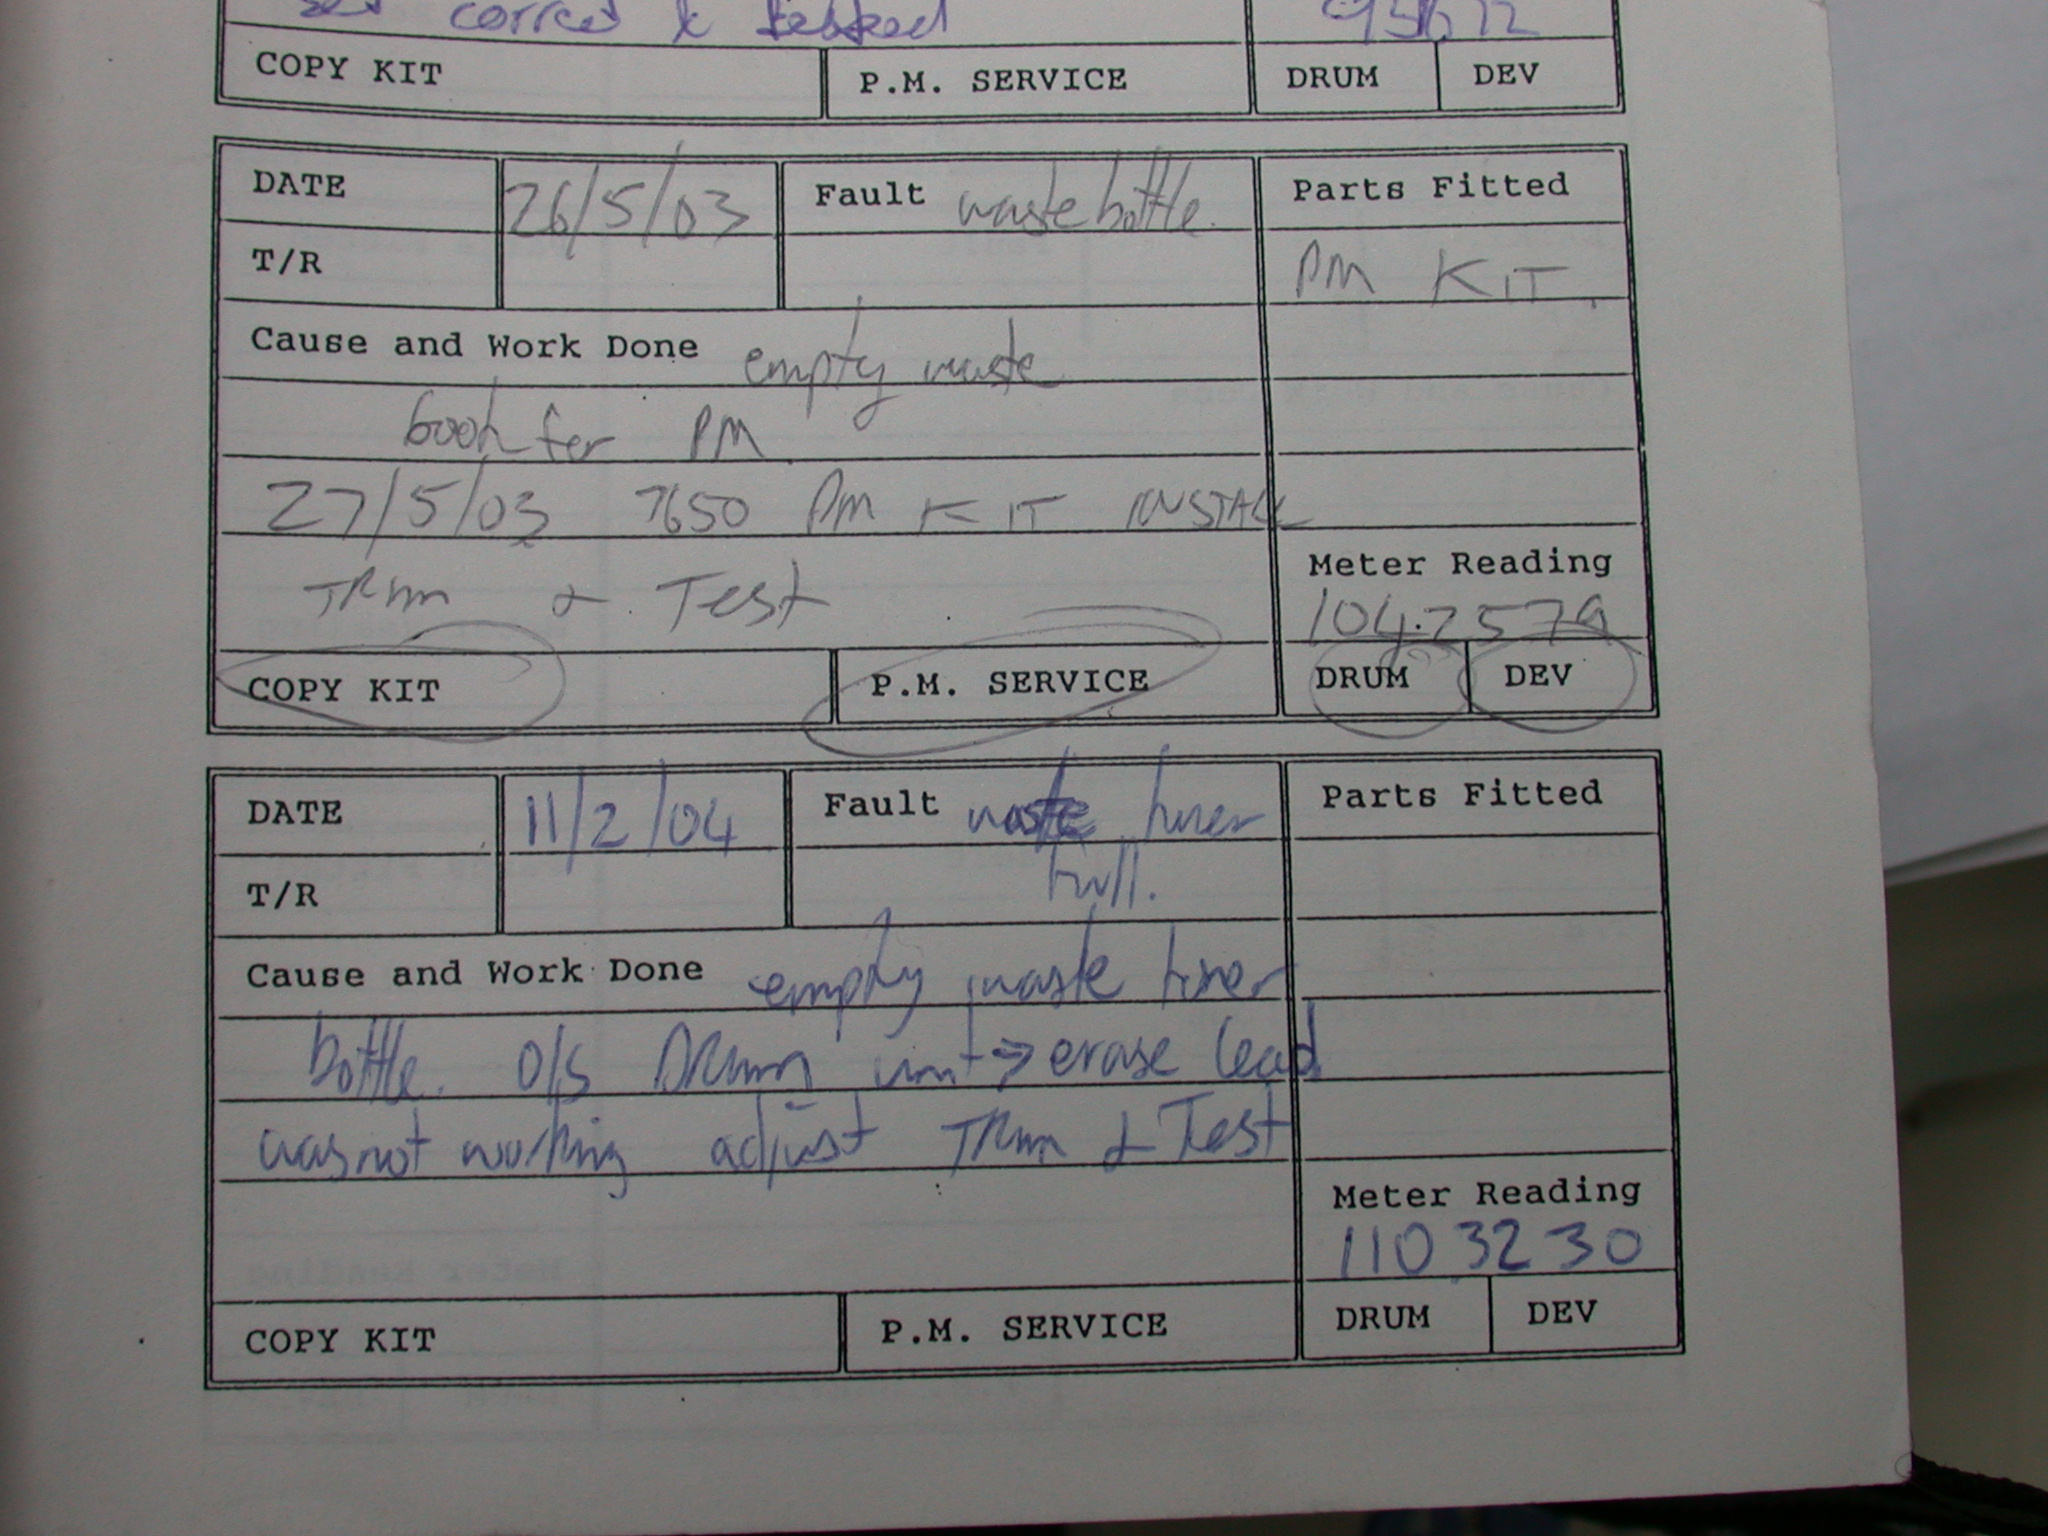 set correct & tested
COPY KIT P.M. SERVICE DRUM DEV
DATE 26/5/03 Fault waste bottle. Parts Fitted
T/R PM KIT
Cause and Work Done empty waste
book for PM
27/5/03 7650 PM KIT INSTALL
Meter Reading
TRIM & Test 1042579
COPY KIT P.M. SERVICE DRUM DEV
DATE 11/2/04 Fault waste toner Parts Fitted
T/R full.
Cause and Work Done empty waste toner
bottle. O/S DRUM unit → erase lead
was not working adjust TRIM & Test
Meter Reading
1103230
COPY KIT P.M. SERVICE DRUM DEV